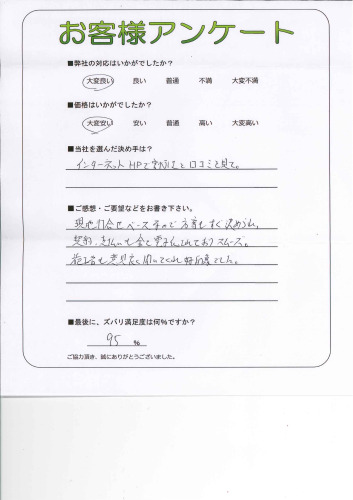 お客様アンケート
■弊社の対応はいかがでしたか？
大変良い 良い 普通 不満 大変不満
■価格はいかがでしたか？
大変安い 安い 普通 高い 大変高い
■当社を選んだ決め手は？
インターネットHPで 口コミを見て。
■ご感想・ご要望などをお書き下さい。
現地 ベース で すぐ決められ、
契約、支払いも全て ておりスムーズ。
も意見 聞いてくれ でした。
■最後に、ズバリ満足度は何％ですか？
95 ％
ご協力頂き、誠にありがとうございました。